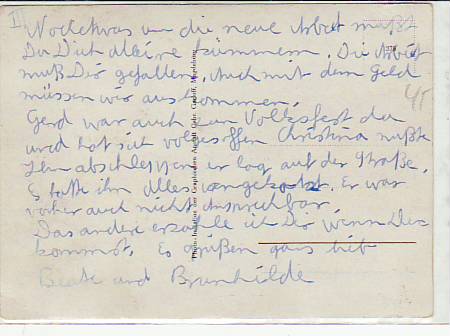 II
Noch etwas um die neue Arbeit mußt
Du Dich alleine kümmern. Die Arbeit
muß Dir gefallen. Auch mit dem Geld
müssen wir auskommen.
Gerd war auch zum Volksfest da
und hat sich vollgesoffen Christina mußte
Ihn abschleppen er lag auf der Straße.
Es hatte ihn alles angekotzt. Er war
vorher auch nicht ansprechbar.
Das andere erzähle ich Dir wenn Du
kommst. Es grüßen ganz lieb
Beate und Brunhilde
45